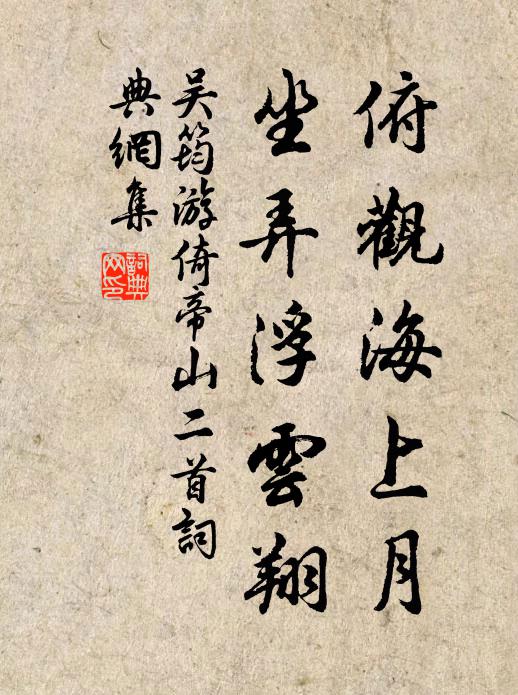 俯觀海上月
坐弄浮雲翔
吴筠游倚帝山二首詞
典網集
詞典網印